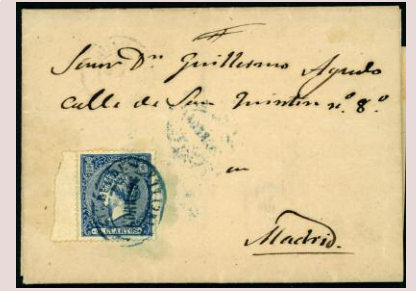 Señor Dn Guillermo Agudo
Calle de San Quintin nº 8º
en
Madrid.
CUARTOS